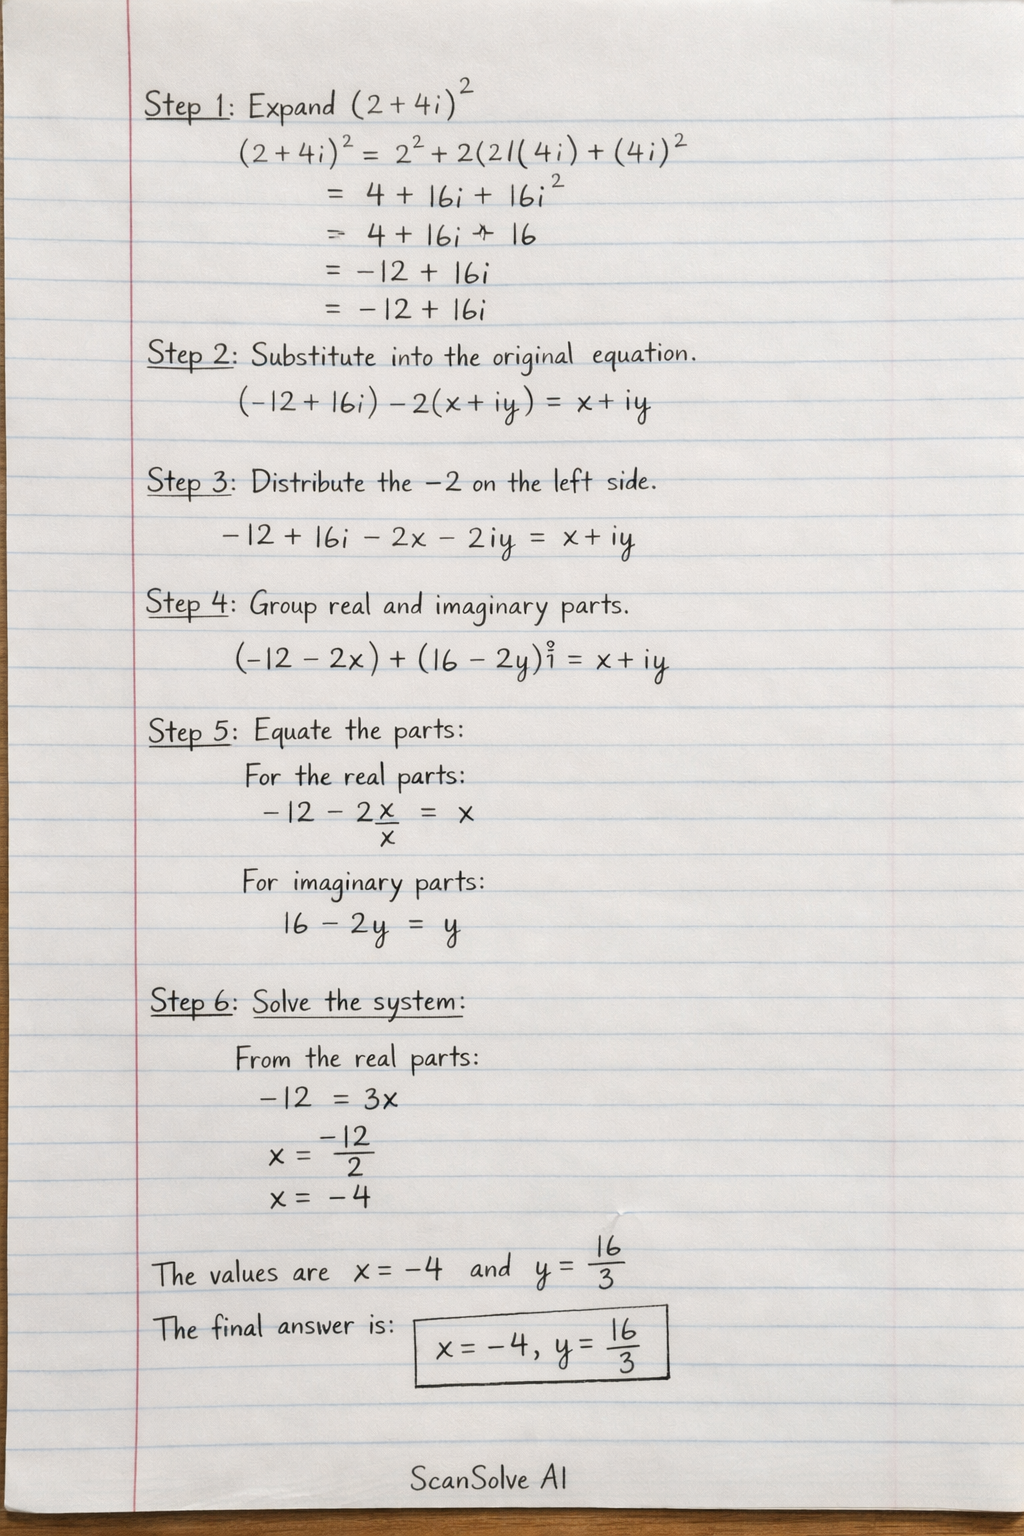 Step 1: Expand (2 + 4i)²
(2 + 4i)² = 2² + 2(2/(4i) + (4i)²
= 4 + 16i + 16i²
= 4 + 16i + 16
= -12 + 16i
= -12 + 16i
Step 2: Substitute into the original equation.
(-12 + 16i) - 2(x + iy) = x + iy
Step 3: Distribute the -2 on the left side.
-12 + 16i - 2x - 2iy = x + iy
Step 4: Group real and imaginary parts.
(-12 - 2x) + (16 - 2y)i = x + iy
Step 5: Equate the parts:
For the real parts:
-12 - 2x/x = x
For imaginary parts:
16 - 2y = y
Step 6: Solve the system:
From the real parts:
-12 = 3x
x = -12/2
x = -4
The values are x = -4 and y = 16/3
The final answer is: x = -4, y = 16/3
ScanSolve AI